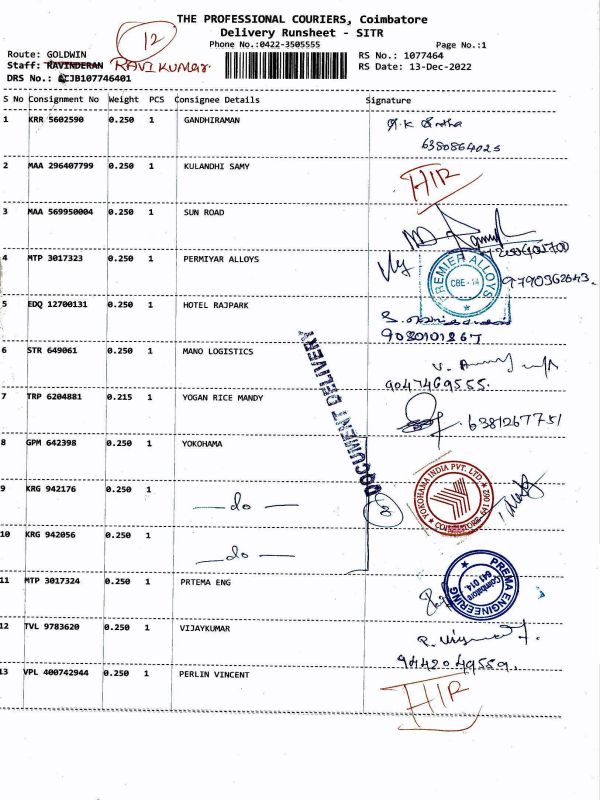 THE PROFESSIONAL COURIERS, Coimbatore
Delivery Runsheet - SITR
Phone No.:0422-3505555 Page No.:1
12
Route: GOLDWIN RS No.: 1077464
Staff: RAVINDERAN RAVI KUMAR RS Date: 13-Dec-2022
DRS No.: CJB107746401
S No Consignment No Weight PCS Consignee Details Signature
1 KRR 5602590 0.250 1 GANDHIRAMAN
6380864025
2 MAA 296407799 0.250 1 KULANDHI SAMY HIR
3 MAA 569950004 0.250 1 SUN ROAD
4 MTP 3017323 0.250 1 PERMIYAR ALLOYS PREMIER ALLOYS CBE - 14
5 EDQ 12700131 0.250 1 HOTEL RAJPARK
9080101267
6 STR 649061 0.250 1 MANO LOGISTICS
9047469555
7 TRP 6204881 0.215 1 YOGAN RICE MANDY 6381267751
DOCUMENT DELIVERY
8 GPM 642398 0.250 1 YOKOHAMA
9 KRG 942176 0.250 1 — do — YOKOHAMA INDIA PVT. LTD. COIMBATORE-641 062
10 KRG 942056 0.250 1 — do —
11 MTP 3017324 0.250 1 PRTEMA ENG PREMA ENGINEERING Coimbatore 641 014.
12 TVL 9783620 0.250 1 VIJAYKUMAR
9442049559.
13 VPL 400742944 0.250 1 PERLIN VINCENT HIR